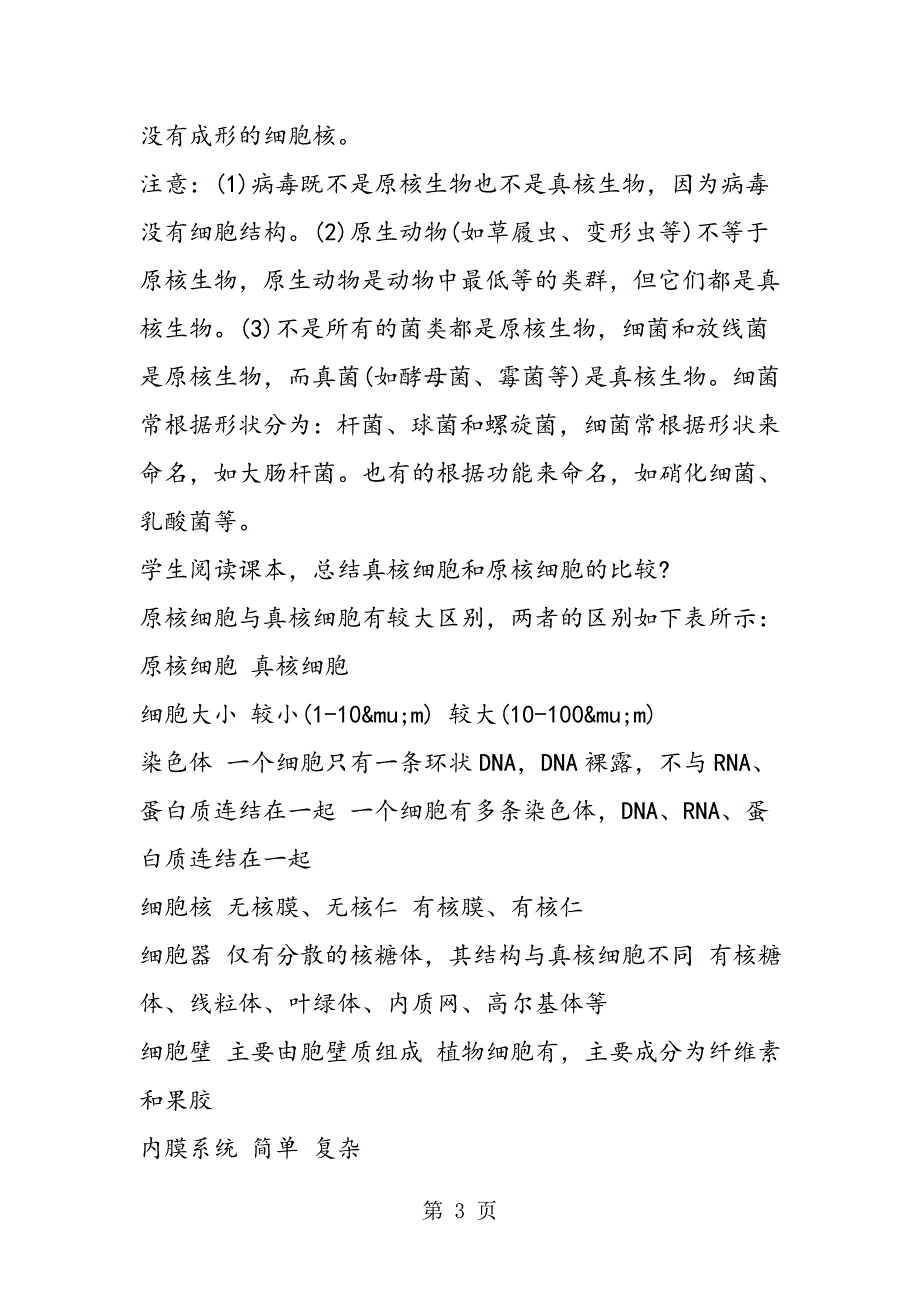 没有成形的细胞核。
注意：(1)病毒既不是原核生物也不是真核生物，因为病毒
没有细胞结构。(2)原生动物(如草履虫、变形虫等)不等于
原核生物，原生动物是动物中最低等的类群，但它们都是真
核生物。(3)不是所有的菌类都是原核生物，细菌和放线菌
是原核生物，而真菌(如酵母菌、霉菌等)是真核生物。细菌
常根据形状分为：杆菌、球菌和螺旋菌，细菌常根据形状来
命名，如大肠杆菌。也有的根据功能来命名，如硝化细菌、
乳酸菌等。
学生阅读课本，总结真核细胞和原核细胞的比较?
原核细胞与真核细胞有较大区别，两者的区别如下表所示：
原核细胞 真核细胞
细胞大小 较小(1-10&mu;m) 较大(10-100&mu;m)
染色体 一个细胞只有一条环状DNA，DNA裸露，不与RNA、
蛋白质连结在一起 一个细胞有多条染色体，DNA、RNA、蛋
白质连结在一起
细胞核 无核膜、无核仁 有核膜、有核仁
细胞器 仅有分散的核糖体，其结构与真核细胞不同 有核糖
体、线粒体、叶绿体、内质网、高尔基体等
细胞壁 主要由胞壁质组成 植物细胞有，主要成分为纤维素
和果胶
内膜系统 简单 复杂
第 3 页